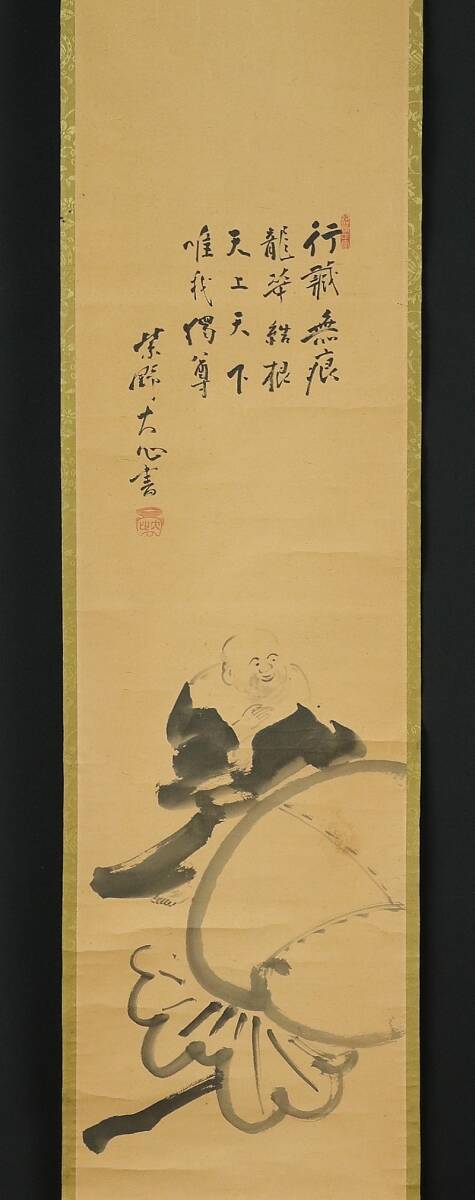 行蔵無痕
龍華結根
天上天下
唯我獨尊
紫野大心書